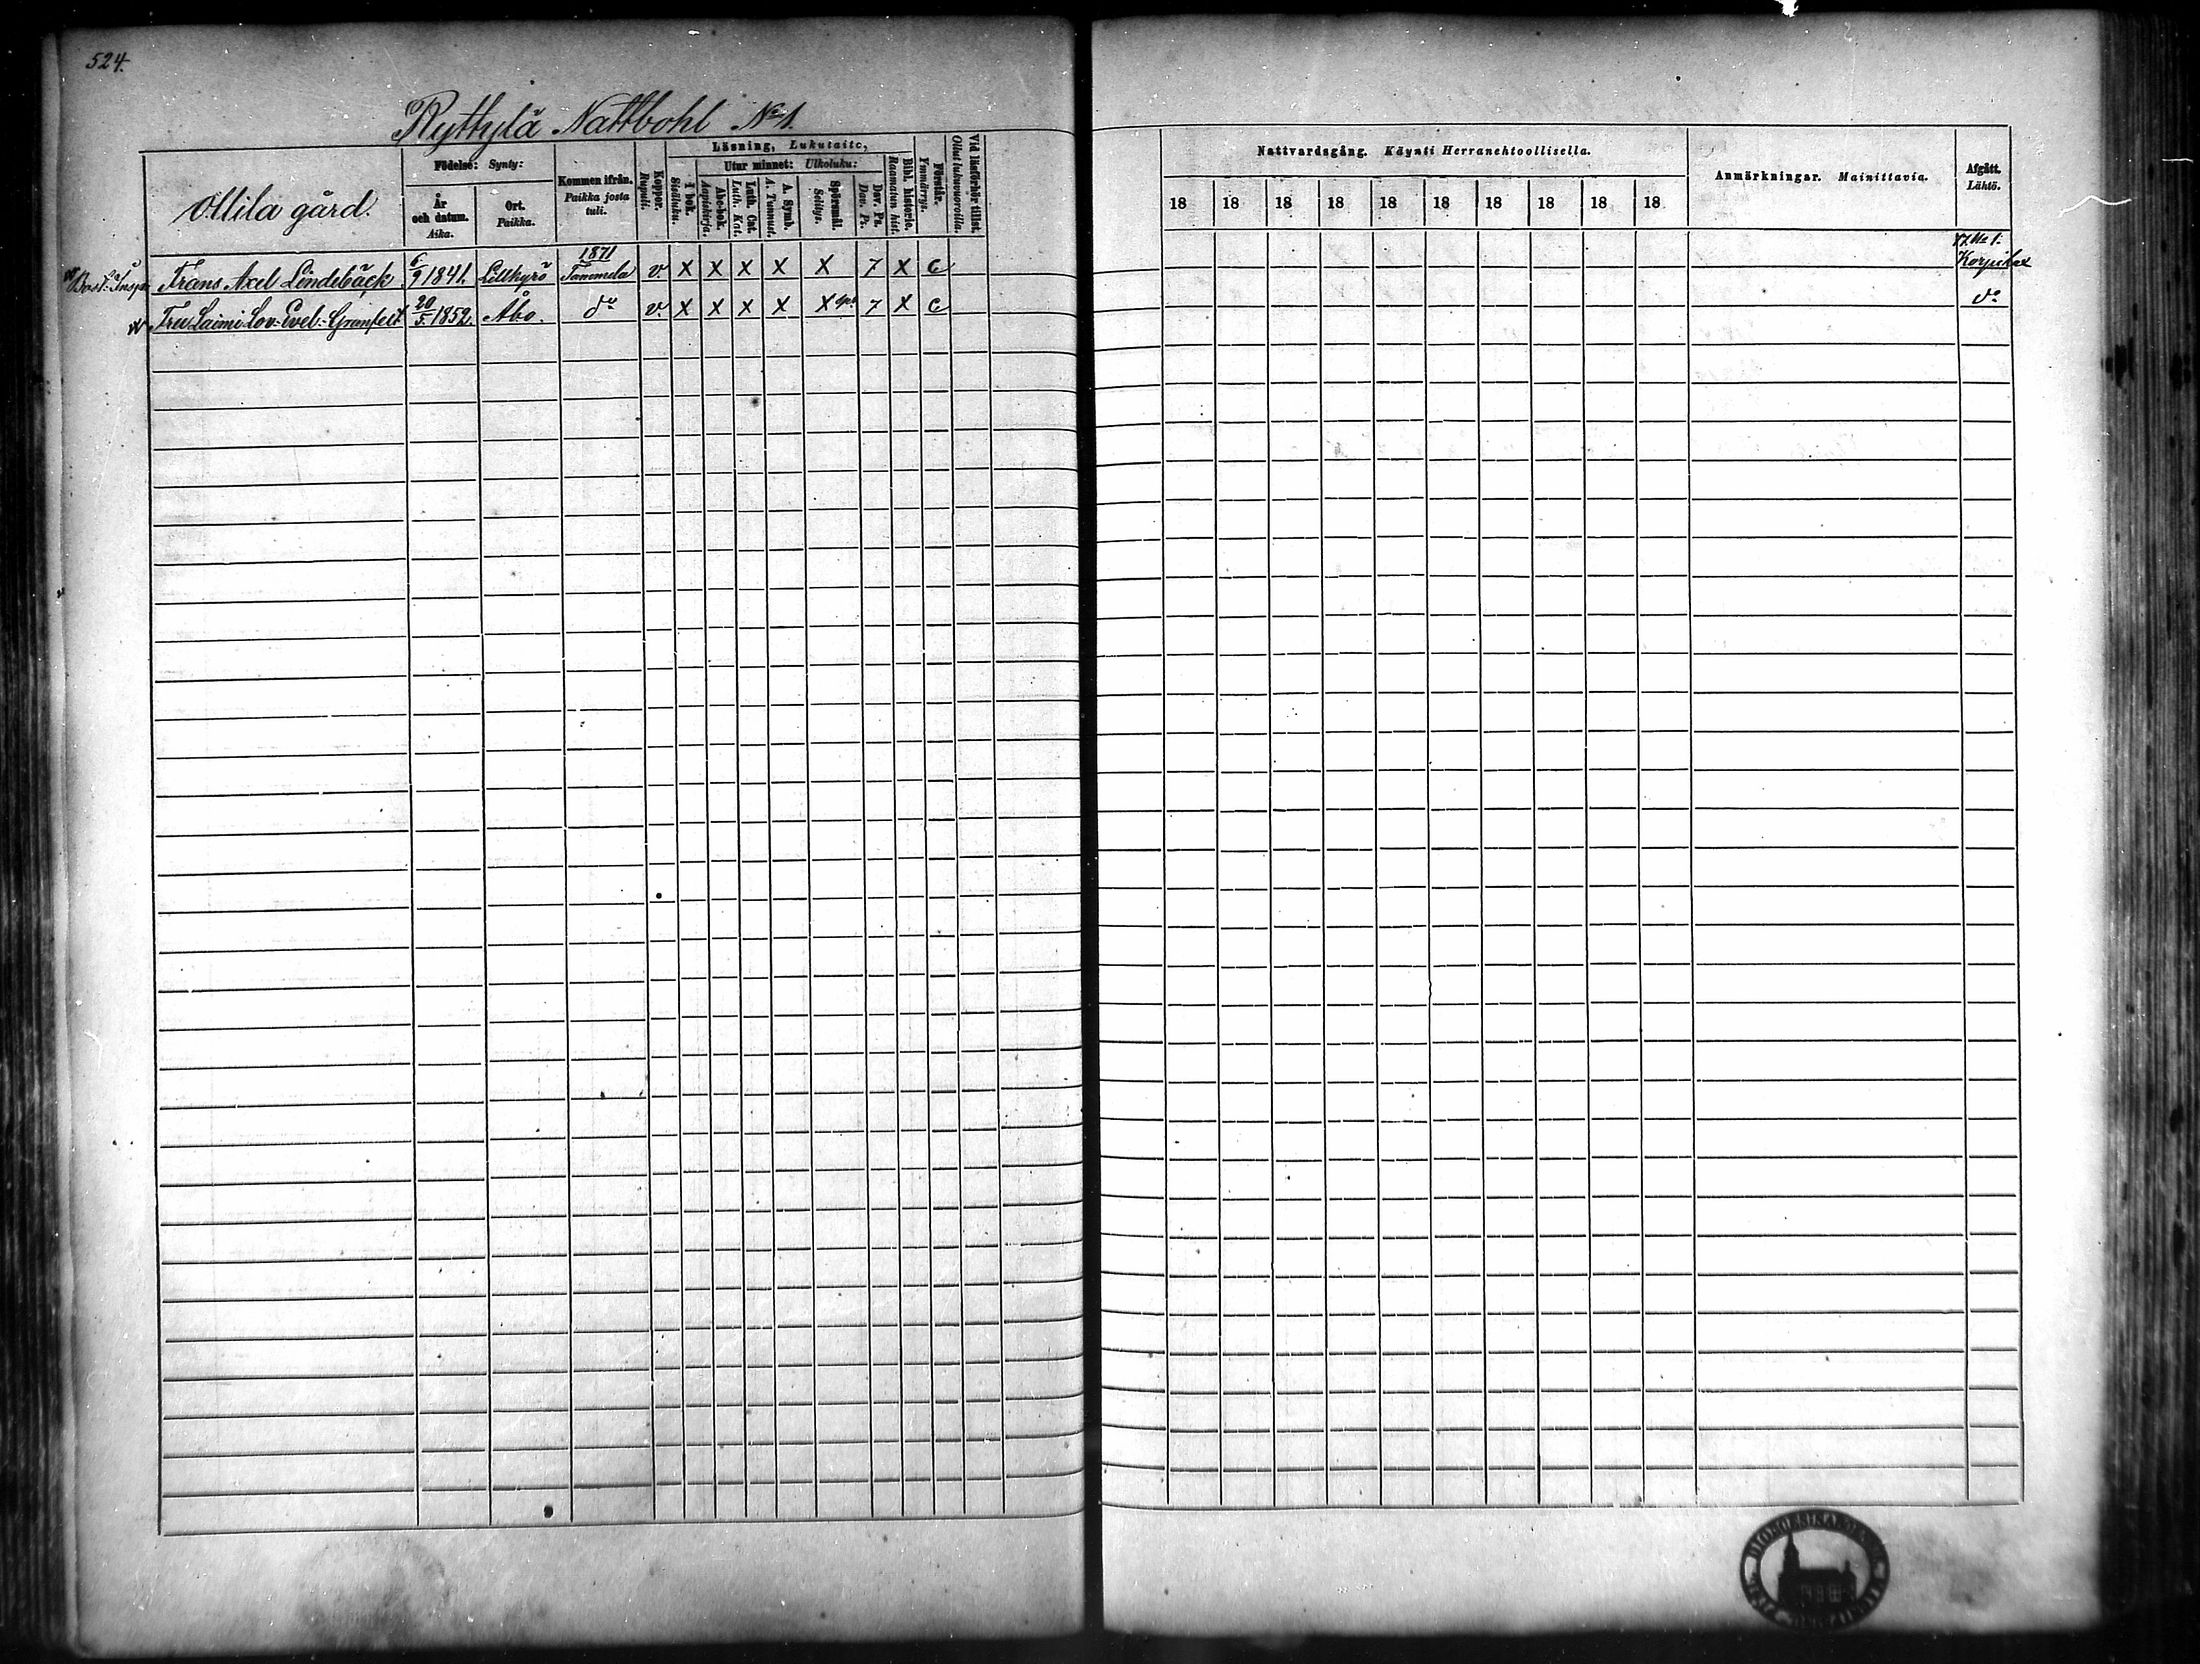 524.
Ryttylä Nattbohl No 1.
Ollila gård.
Födelse: Synty:
År och datum. Aika.
Ort. Paikka.
Kommen ifrån. Paikka josta tuli.
Koppor. Rupuli.
Läsning, Lukutaito,
I bok. Sisäluku.
Utur minnet: Ulkoluku:
Abc-bok. Aapiskirja.
Luth. Cat. Luth. Kat.
A. Symb. A. Tunnust.
Spörsmål. Selitys.
Dav. Ps. Dav. Ps.
Bibl. historie. Raamatun hist.
Förstår. Ymmärrys.
Vid läsförhör tillst. Ollut lukuvuoroilla.
Nattvardsgång. Käynti Herranehtoollisella.
18 18 18 18 18 18 18 18 18 18
Anmärkningar. Mainittavia.
Afgått. Lähtö.
Frans Axel Lindebäck 6/9 1841. Lillkyrö 1871 Tammela v X X X X X 7 X C
Fru Laimi Lov. Evel. 20/5 1852. Åbo. do v. X X X X X 7 X C do